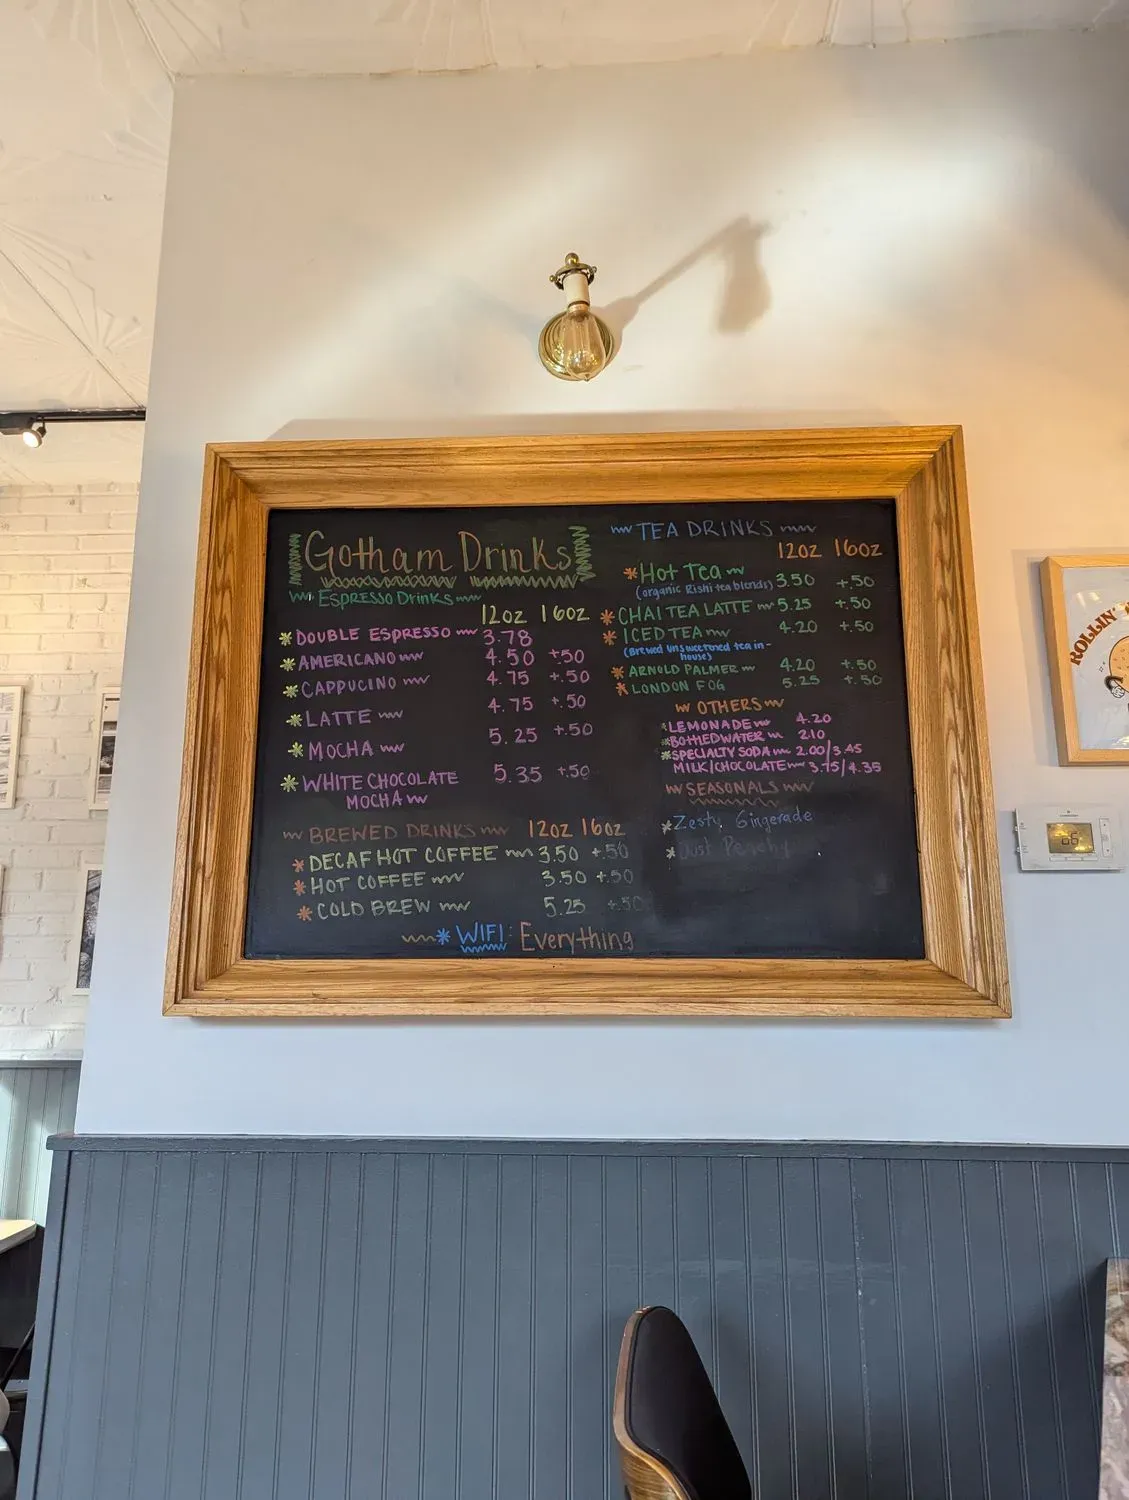 Gotham Drinks
Espresso Drinks
12oz 16oz
DOUBLE ESPRESSO 3.78
AMERICANO 4.50 +.50
CAPPUCINO 4.75 +.50
LATTE 4.75 +.50
MOCHA 5.25 +.50
WHITE CHOCOLATE 5.35 +.50
MOCHA
BREWED DRINKS 12oz 16oz
DECAF HOT COFFEE 3.50 +.50
HOT COFFEE 3.50 +.50
COLD BREW 5.25 +.50
WIFI: Everything
TEA DRINKS
12oz 16oz
HOT TEA 3.50 +.50
(organic Rishi tea blends)
CHAI TEA LATTE 5.25 +.50
ICED TEA 4.20 +.50
(Brewed unsweetened tea in-
house)
ARNOLD PALMER 4.20 +.50
LONDON FOG 5.25 +.50
OTHERS
LEMONADE 4.20
BOTTLED WATER 210
SPECIALTY SODA 2.00/3.45
MILK/CHOCOLATE 3.75/4.35
SEASONALS
Zesty Gingerade
Just Peachy
ROLLIN'
66